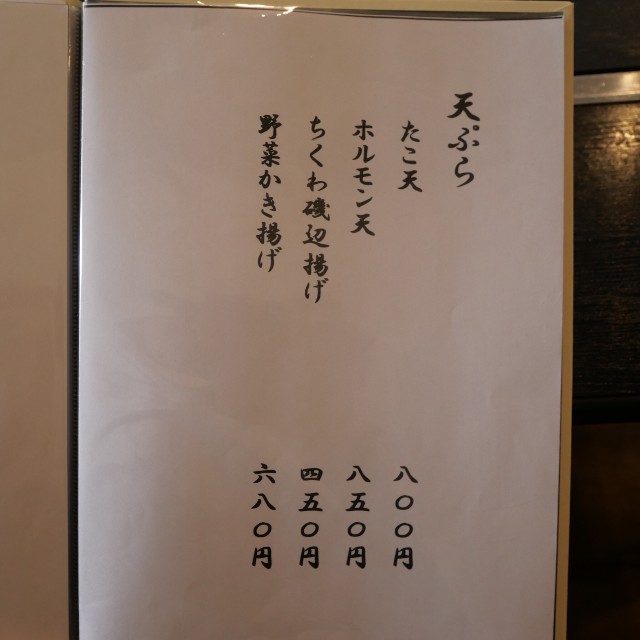 天ぷら
たこ天 八〇〇円
ホルモン天 八五〇円
ちくわ磯辺揚げ 四五〇円
野菜かき揚げ 六八〇円